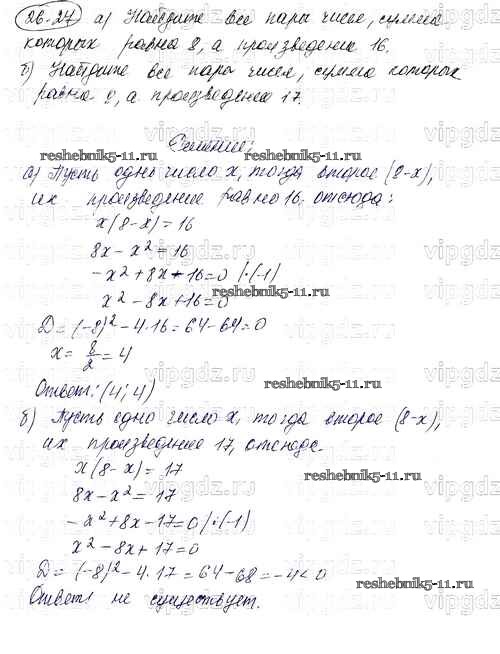 26.27 а) Найдите все пары чисел, сумма
которых равна 8, а произведение 16.
б) Найдите все пары чисел, сумма которых
равна 8, а произведение 17.
Решение:
reshebnik5-11.ru
reshebnik5-11.ru
а) Пусть одно число x, тогда второе (8-x),
их произведение равно 16. отсюда:
x(8-x)=16
8x-x²=16
-x²+8x-16=0 |·(-1)
reshebnik5-11.ru
x²-8x+16=0
D=(-8)²-4·16=64-64=0
x=8/2=4
reshebnik5-11.ru
Ответ: (4; 4)
б) Пусть одно число x, тогда второе (8-x),
их произведение 17, отсюда.
x(8-x)=17
reshebnik5-11.ru
8x-x²=17
-x²+8x-17=0 |·(-1)
x²-8x+17=0
D=(-8)²-4·17=64-68=-4<0
reshebnik5-11.ru
Ответ: не существует.
vipgdz.ru